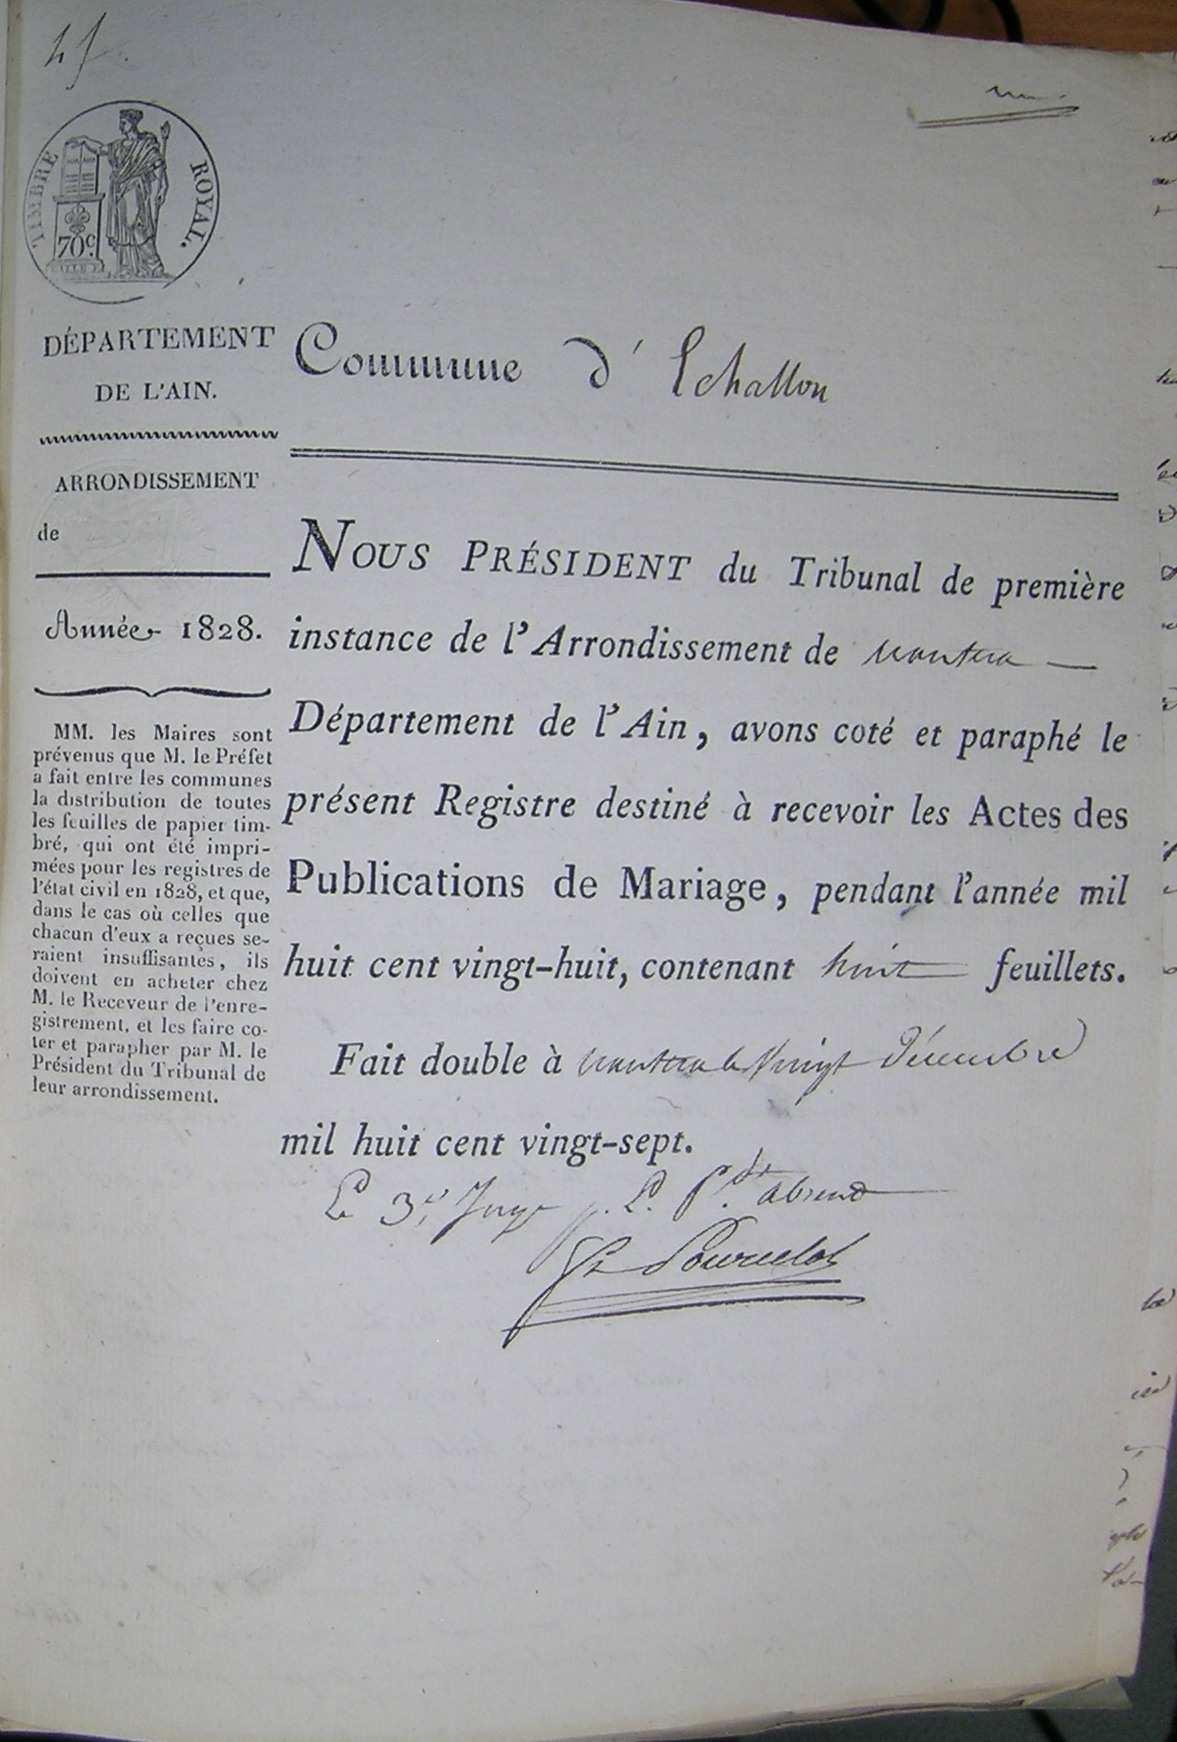 TIMBRE ROYAL.
70 c.
DÉPARTEMENT
DE L'AIN.
ARRONDISSEMENT
de
Année 1828.
MM. les Maires sont
prévenus que M. le Préfet
a fait entre les communes
la distribution de toutes
les feuilles de papier tim-
bré, qui ont été impri-
mées pour les registres de
l'état civil en 1828, et que,
dans le cas où celles que
chacun d'eux a reçues se-
raient insuffisantes, ils
doivent en acheter chez
M. le Receveur de l'enre-
gistrement, et les faire co-
ter et parapher par M. le
Président du Tribunal de
leur arrondissement.
Commune d' Echallon
NOUS PRÉSIDENT du Tribunal de première
instance de l'Arrondissement de nantua
Département de l'Ain, avons coté et paraphé le
présent Registre destiné à recevoir les Actes des
Publications de Mariage, pendant l'année mil
huit cent vingt-huit, contenant huit feuillets.
Fait double à nantua le vingt Décembre
mil huit cent vingt-sept.
Le 3e Juge p. L. P.dt absent